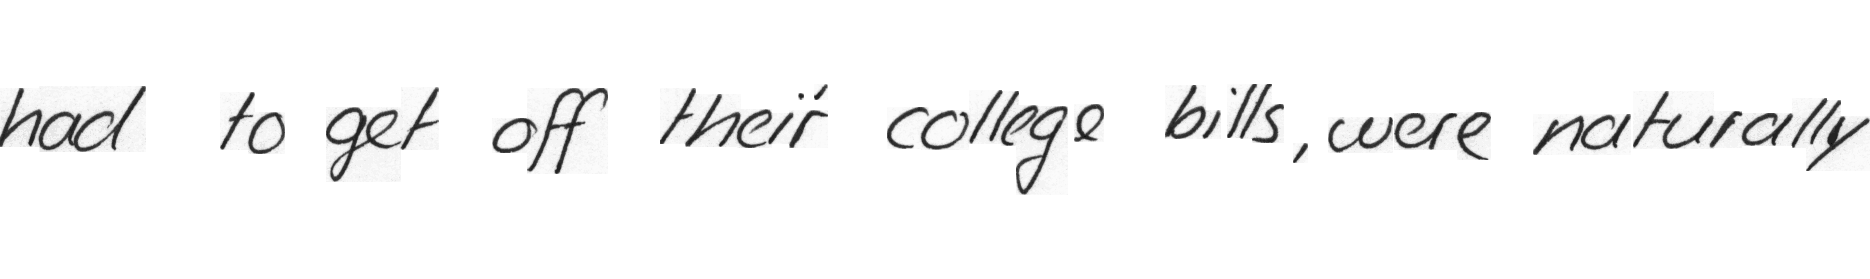 had to get off their college bills, were naturally